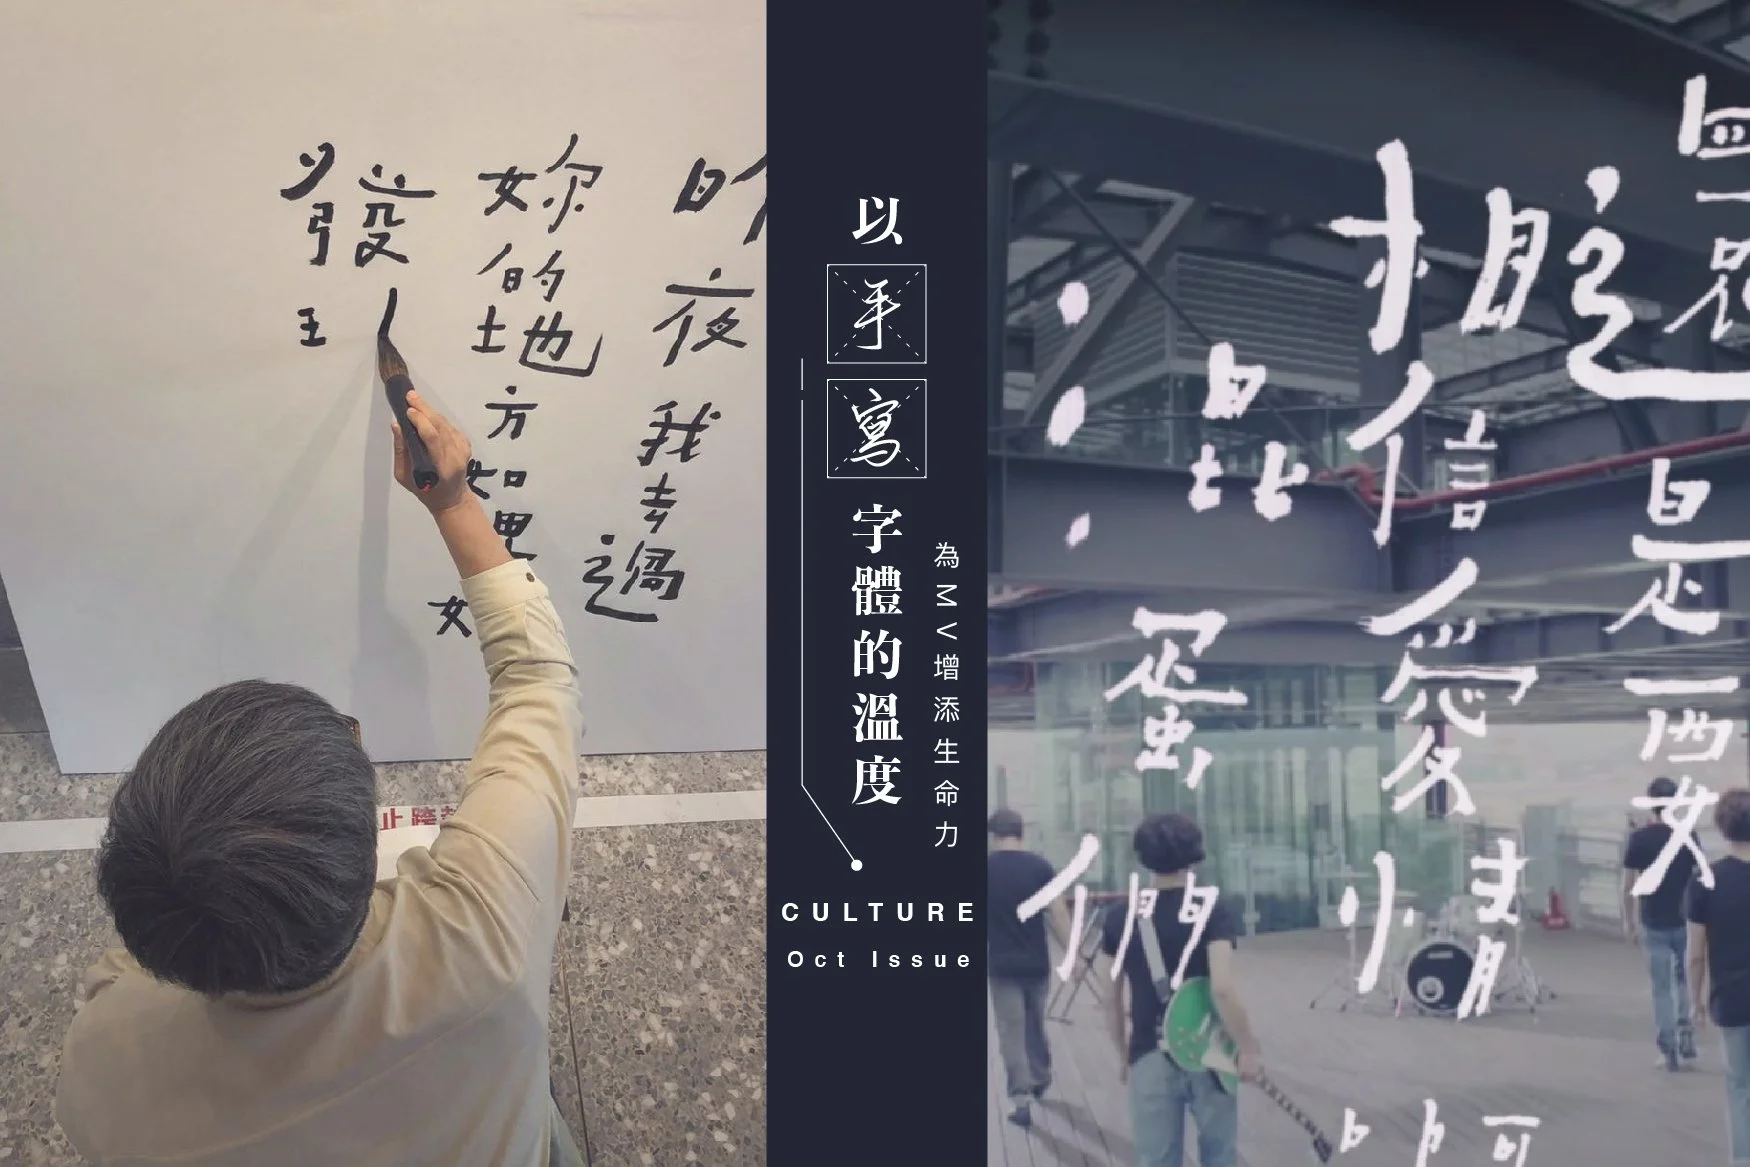 昨夜我去過
妳的地方如果
發
以手寫字體的溫度
為MV增添生命力
CULTURE
Oct Issue
還是要
相信愛情啊
混蛋們